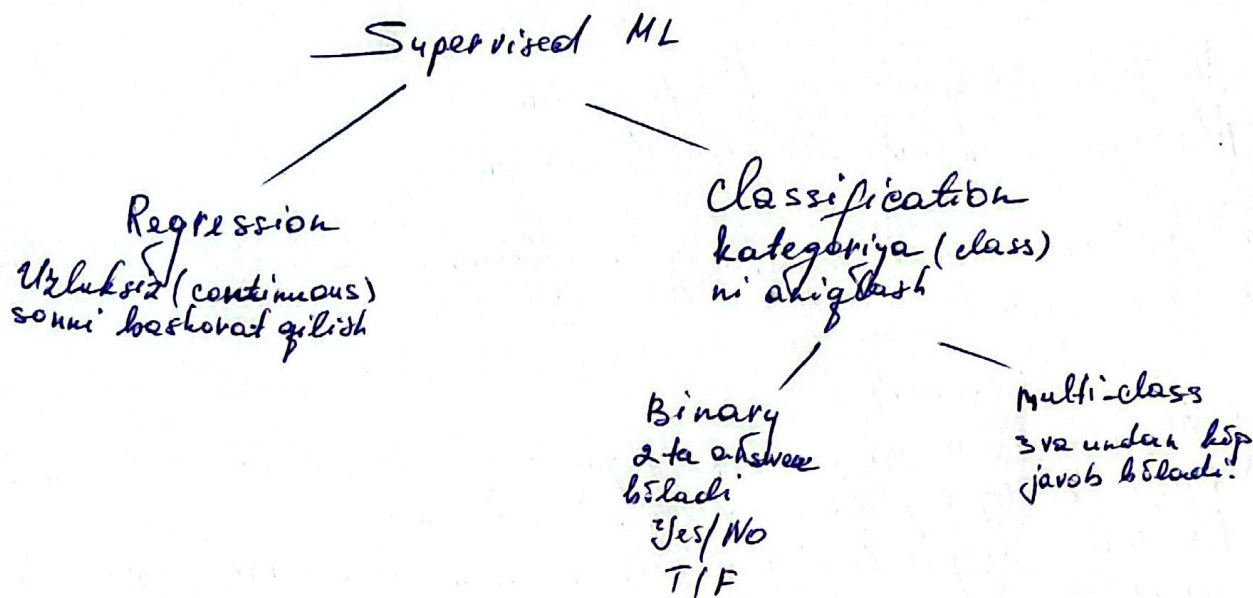 Supervised ML
Regression
Uzluksiz (continuous)
sonni bashorat qilish
Classification
kategoriya (class)
ni aniqlash
Binary
2 ta answer
bŏladi
Yes/No
T/F
Multi-class
3 va undan kŏp
javob bŏladi.